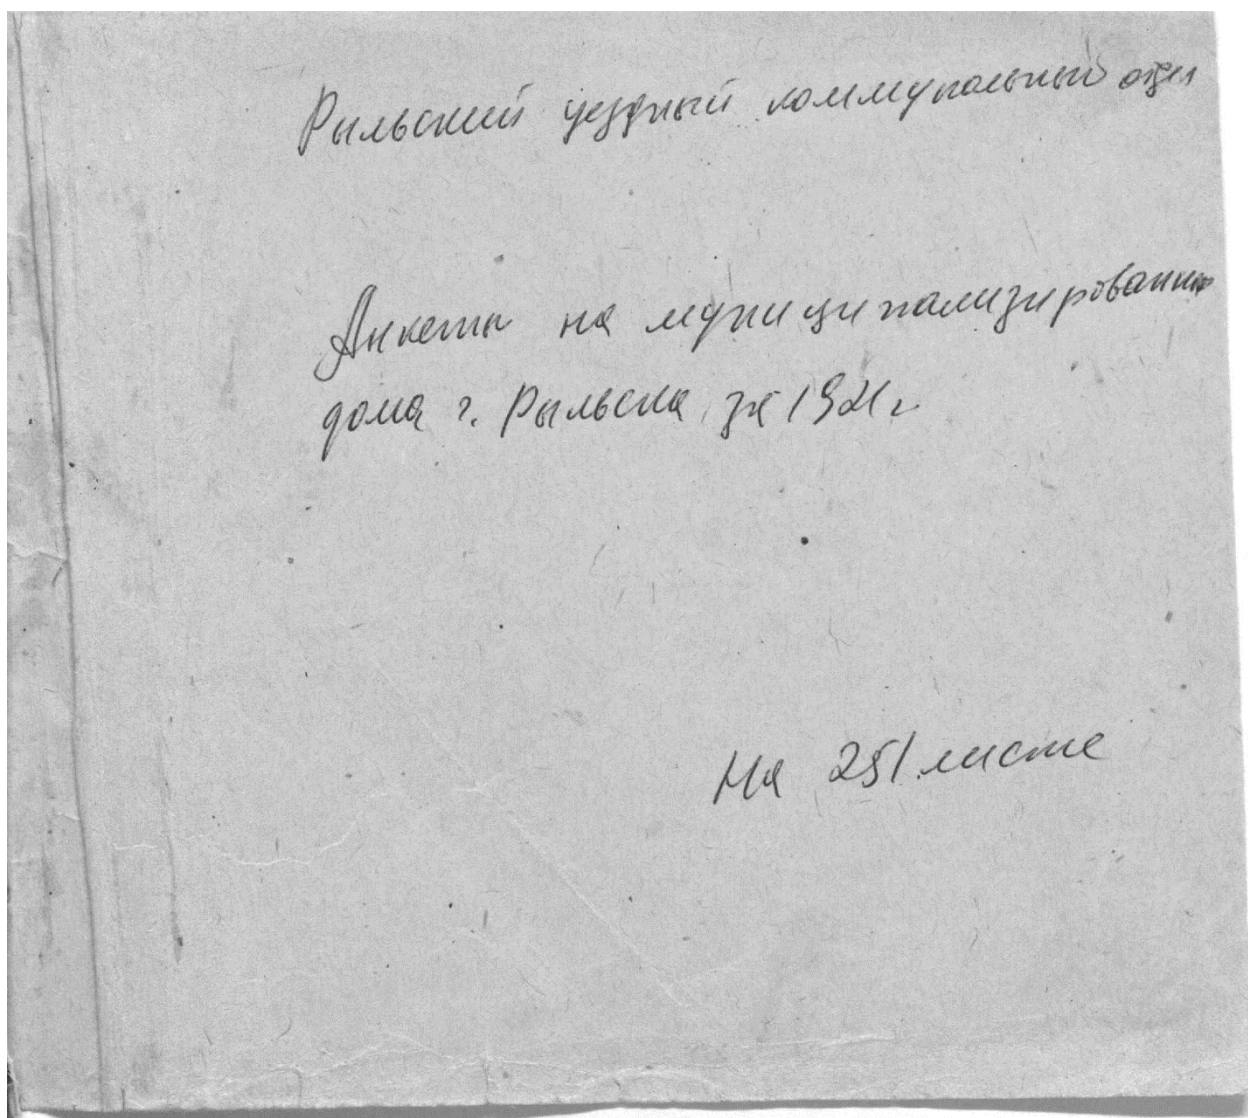 Рыльский уездный коммунальный отдел
Анкеты на муниципализированные
дома г. Рыльска за 1921 г.
На 251 листе